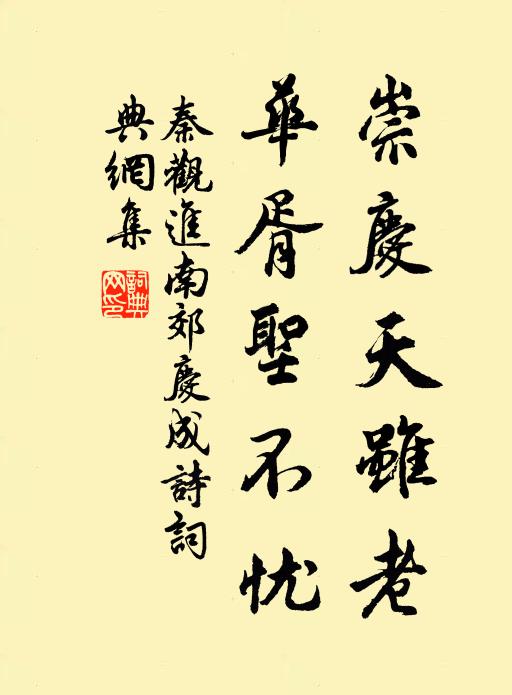 崇慶天雖老
華胥聖不忧
秦觀進南郊慶成詩詞
典網集
詞典網印